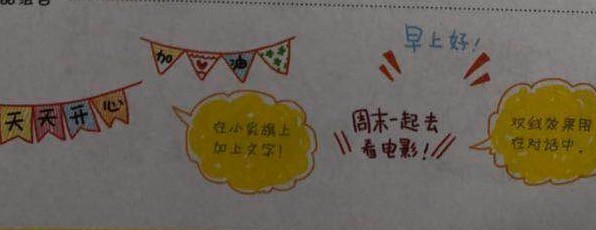 早上好!
加油
天天开心
在小彩旗上
加上文字!
周末一起去
看电影!
双线效果用
在对话中。